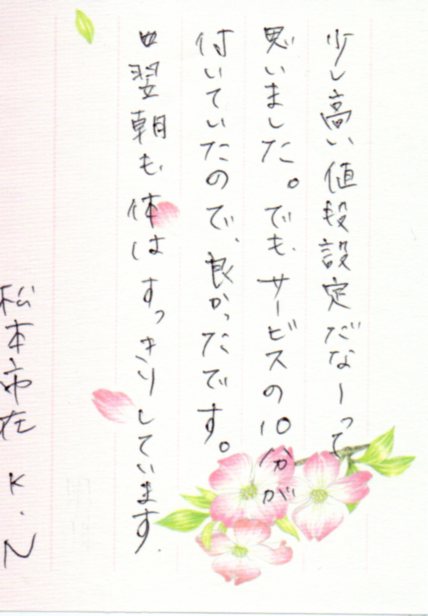 少し高い値段設定だなーって
思いました。でも、サービスの10分が
付いていたので、良かったです。
翌朝も体はすっきりしています.
松本市在 K.N